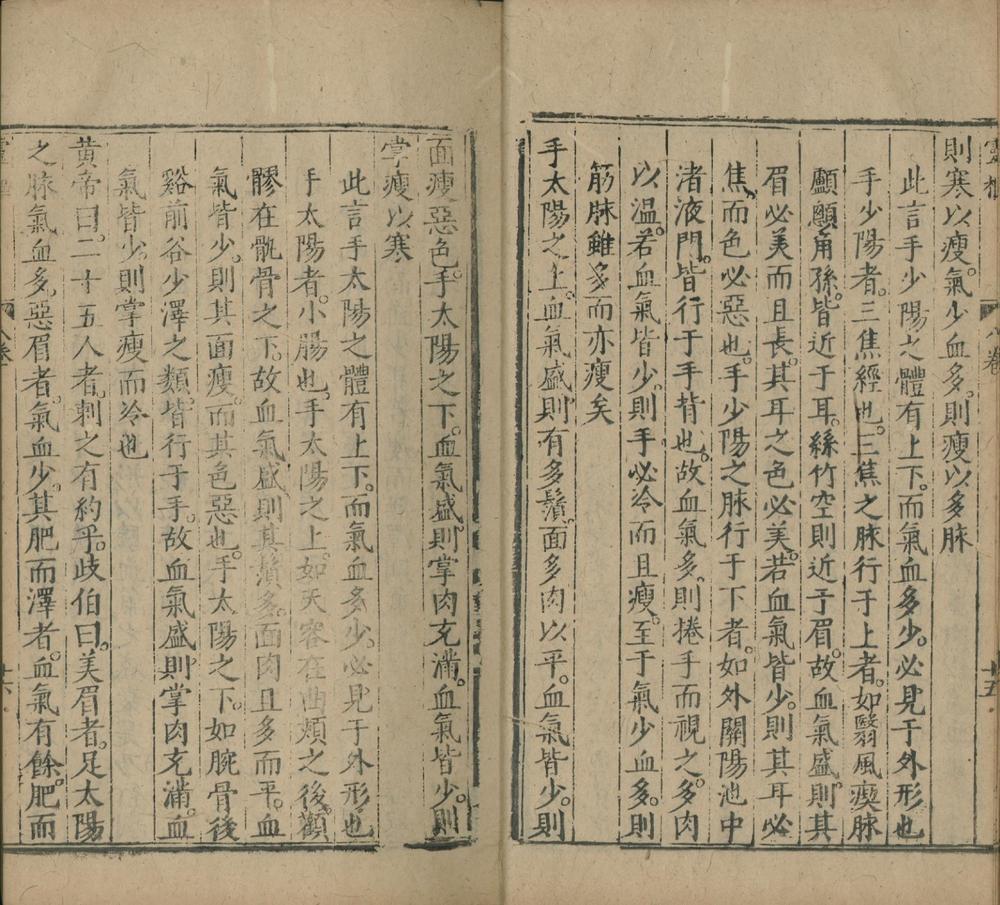 靈樞 八卷 十五
則寒以瘦。氣少血多。則瘦以多脉
此言手少陽之體有上下。而氣血多少。必見于外形也
手少陽者。三焦經也。三焦之脉行于上者。如翳風瘈脉
顱顖角孫。皆近于耳。絲竹空則近于眉。故血氣盛。則其
眉必美而且長。其耳之色必美。若血氣皆少。則其耳必
焦。而色必惡也。手少陽之脉行于下者。如外關陽池中
渚液門。皆行于手背也。故血氣多。則捲手而視之。多肉
以温。若血氣皆少。則手必冷而且瘦。至于氣少血多。則
筋脉雖多而亦瘦矣
手太陽之上。血氣盛。則有多鬚。面多肉以平。血氣皆少。則
面瘦惡色。手太陽之下。血氣盛。則掌肉充滿。血氣皆少。則
掌瘦以寒
此言手太陽之體有上下。而氣血多少。必見于外形也
手太陽者。小腸也。手太陽之上。如天容在曲頰之後。顴
髎在骩骨之下。故血氣盛。則其鬚多。面肉且多而平。血
氣皆少。則其面瘦。而其色惡也。手太陽之下。如腕骨後
谿前谷少澤之類。皆行于手。故血氣盛。則掌肉充滿。血
氣皆少。則掌瘦而冷也
黄帝曰。二十五人者。刺之有約乎。歧伯曰。美眉者。足太陽
之脉氣血多。惡眉者。氣血少。其肥而澤者。血氣有餘。肥而
八卷 十六